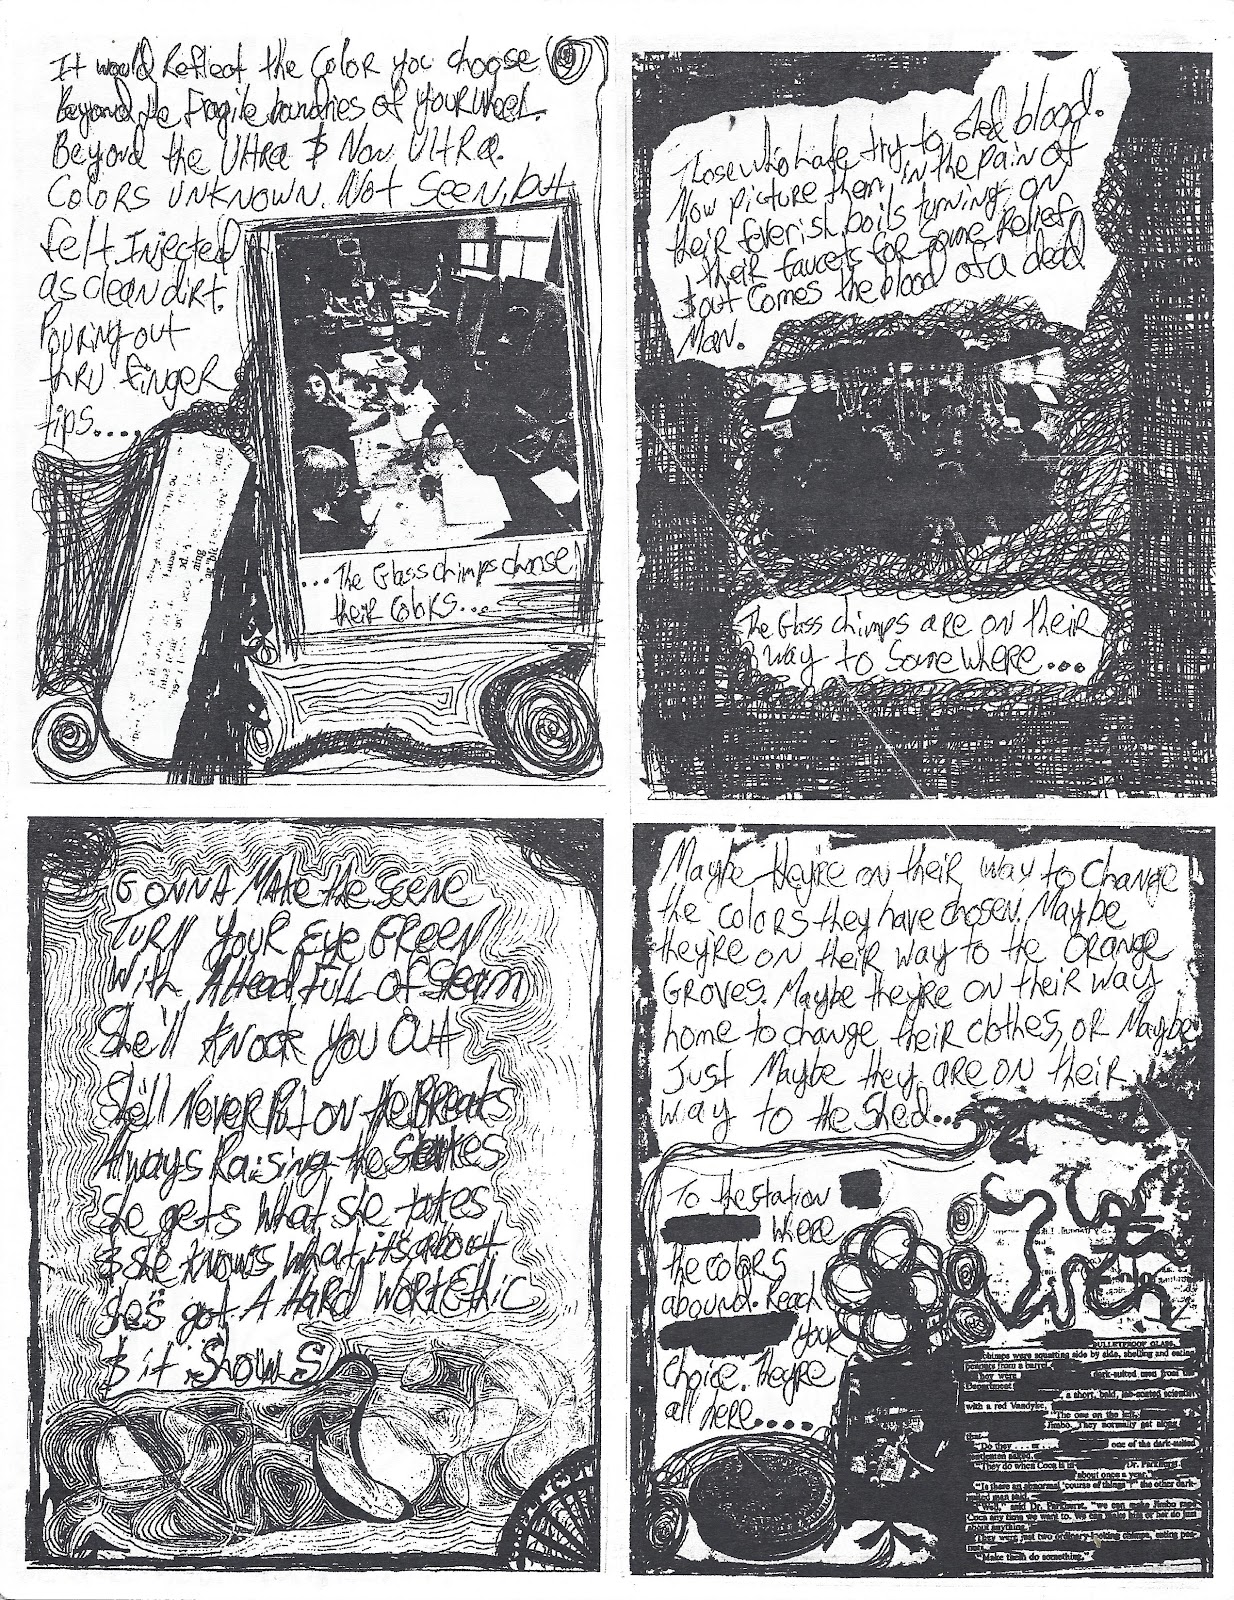 It would Reflect the Color you choose
Beyond the Fragile boundries of your wheel.
Beyond the Ultra & Non Ultra.
COLORS UNKNOWN. Not Seen, but
felt. Injected
as clean dirt.
Pouring out
thru finger
tips....
...The Glass chimps choose
their Colors...
Those who hate try to shed blood.
Now picture them in the pain of
their feverish boils turning on
their faucets for some Relief
& out comes the blood of a dead
Man.
The Glass chimps are on their
way to Somewhere...
GONNA MAKE the SCENE
TURN YOUR Eye GREEN
With A Head FULL OF Steam
She'll KNOCK YOU OUT
She'll Never Put on the Breaks
Always Raising the Stakes
She gets What she takes
& she knows what it's about
She's got A HARD WORK Ethic
& it Shows
Maybe they're on their way to change
the colors they have chosen. Maybe
they're on their way to the Orange
Groves. Maybe they're on their way
home to change their clothes, or Maybe
Just Maybe they are on their
way to the Shed...
To the station
where
the colors
abound. Reach
your
choice. They're
all here.....
BULLETPROOF GLASS,
chimps were squatting side by side, shelling and eating
peanuts from a barrel.
They were dark-suited men from the
Department
a short, bald, white-coated scientist
with a red Vandyke,
"The one on the left,
Jimbo. They normally get along
"Do they . . . or . . . one of the dark-suited
gentlemen asked.
"They do when Coca is in Dr. Parkhurst
about once a year."
"Is there an abnormal 'course of things'?" the other dark-
suited man said.
"Well," said Dr. Parkhurst, "we can make Jimbo rape
Coca any time we want to. We can make him or her do just
about anything."
They were just two ordinary-looking chimps, eating pea-
nuts.
"Make them do something,"